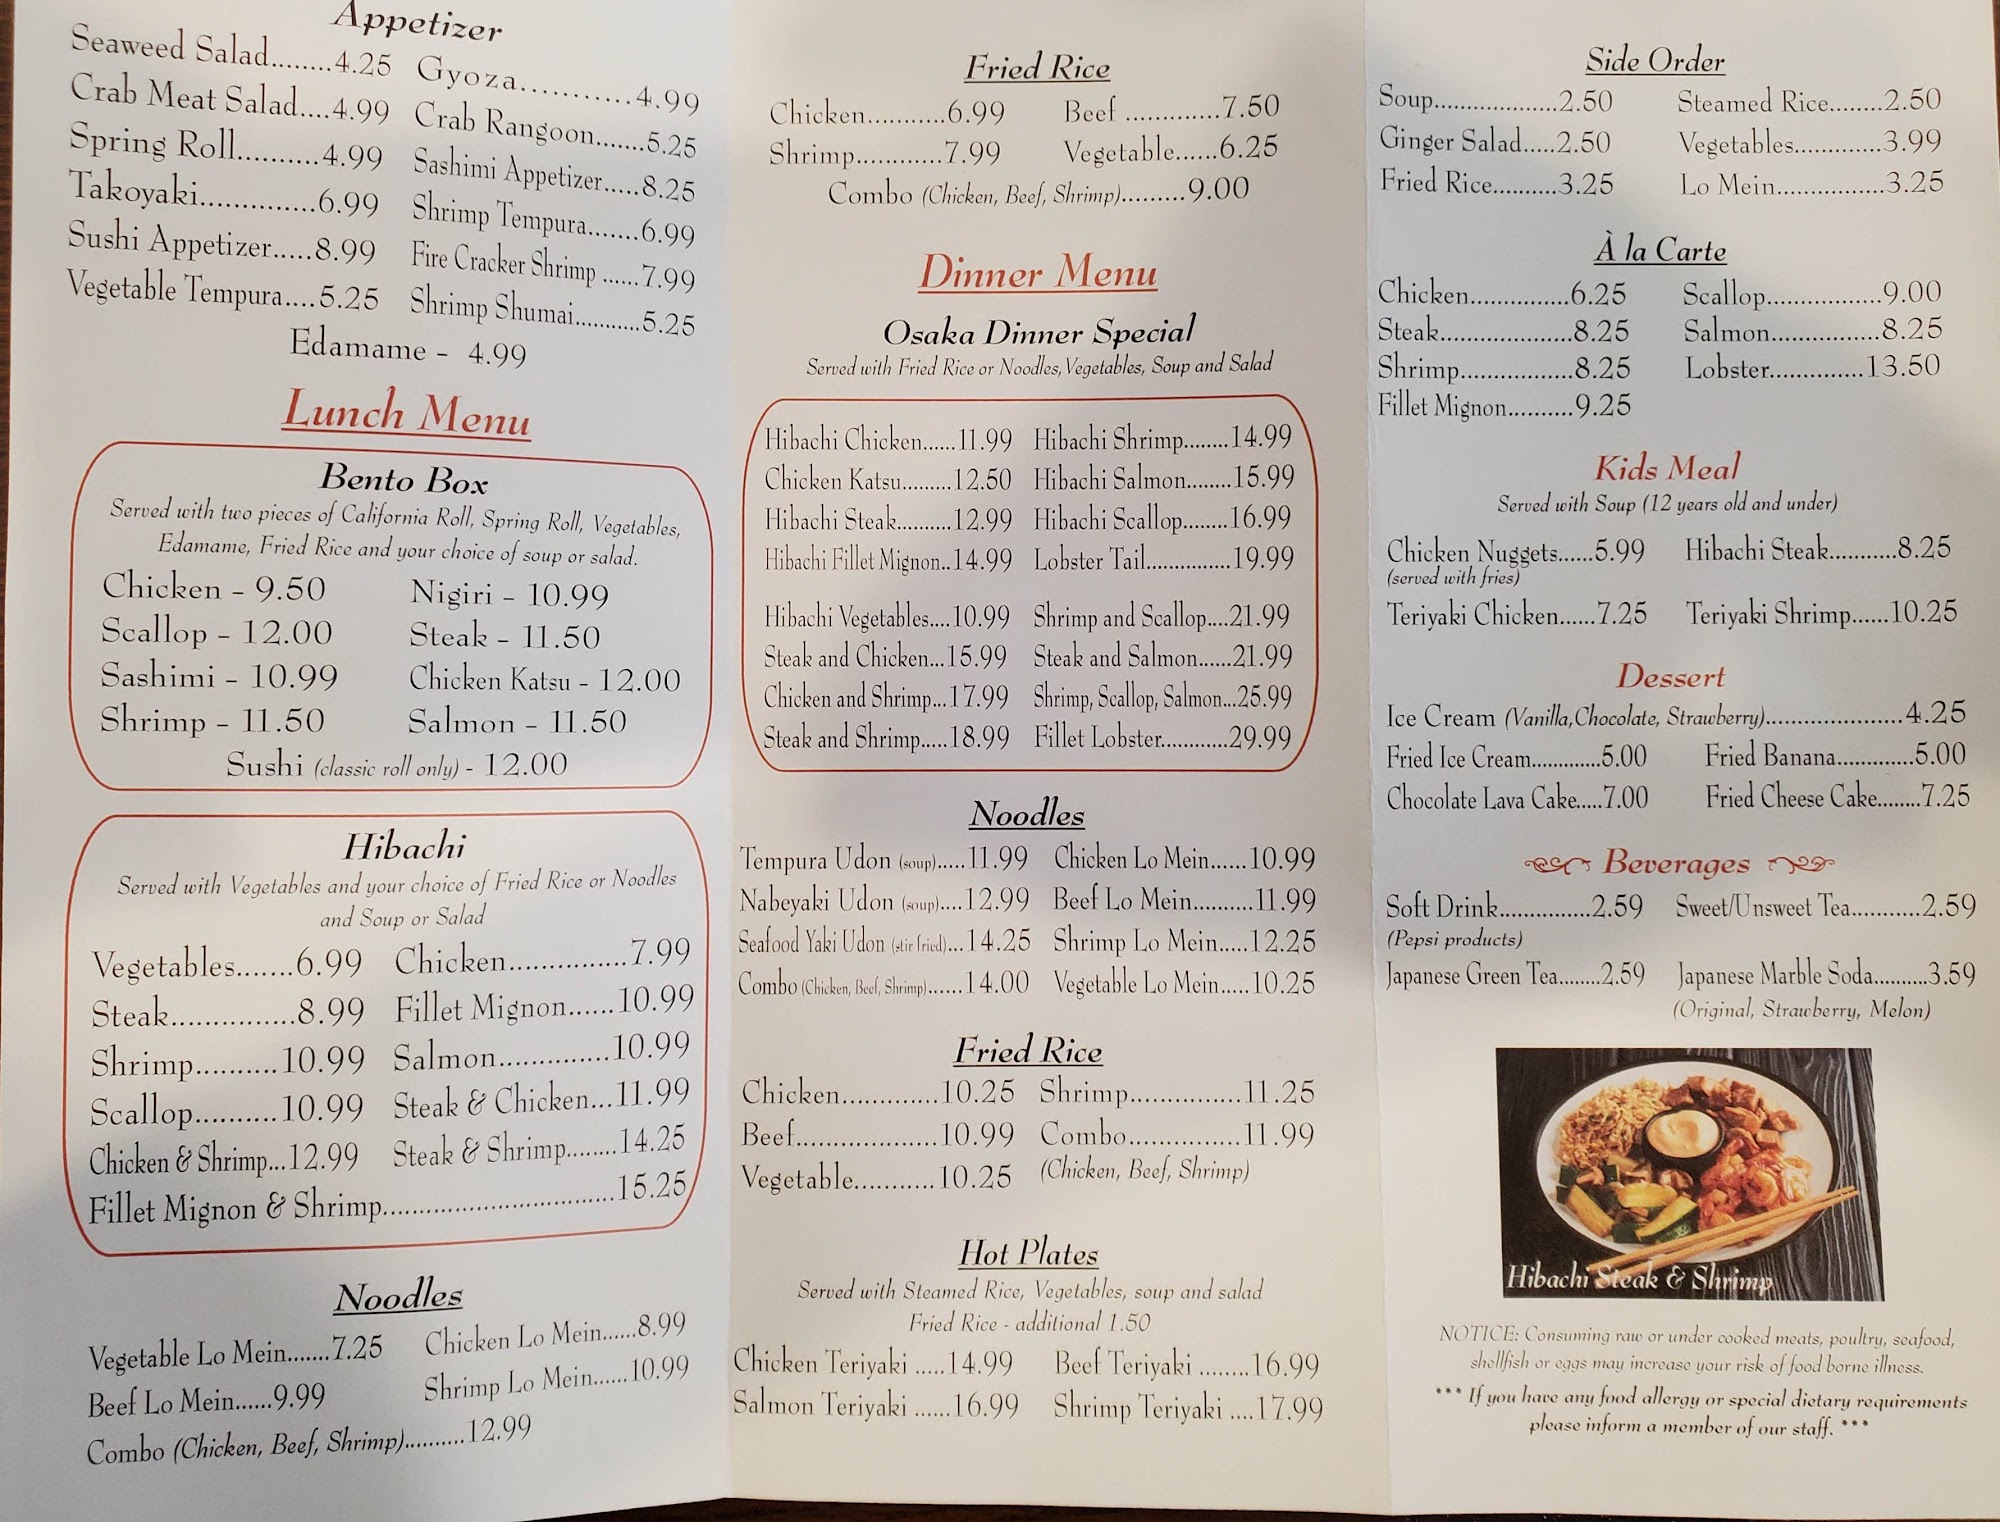 Appetizer
Seaweed Salad........4.25 Gyoza...........4.99
Crab Meat Salad....4.99 Crab Rangoon.......5.25
Spring Roll..........4.99 Sashimi Appetizer.....8.25
Takoyaki..............6.99 Shrimp Tempura.......6.99
Sushi Appetizer.....8.99 Fire Cracker Shrimp ......7.99
Vegetable Tempura....5.25 Shrimp Shumai...........5.25
Edamame - 4.99
Lunch Menu
Bento Box
Served with two pieces of California Roll, Spring Roll, Vegetables,
Edamame, Fried Rice and your choice of soup or salad.
Chicken - 9.50 Nigiri - 10.99
Scallop - 12.00 Steak - 11.50
Sashimi - 10.99 Chicken Katsu - 12.00
Shrimp - 11.50 Salmon - 11.50
Sushi (classic roll only) - 12.00
Hibachi
Served with Vegetables and your choice of Fried Rice or Noodles
and Soup or Salad
Vegetables.......6.99 Chicken...............7.99
Steak...............8.99 Fillet Mignon......10.99
Shrimp..........10.99 Salmon.............10.99
Scallop..........10.99 Steak & Chicken...11.99
Chicken & Shrimp...12.99 Steak & Shrimp........14.25
Fillet Mignon & Shrimp...............................15.25
Noodles
Vegetable Lo Mein.......7.25 Chicken Lo Mein......8.99
Beef Lo Mein......9.99 Shrimp Lo Mein......10.99
Combo (Chicken, Beef, Shrimp)..........12.99
Fried Rice
Chicken...........6.99 Beef .............7.50
Shrimp............7.99 Vegetable......6.25
Combo (Chicken, Beef, Shrimp).........9.00
Dinner Menu
Osaka Dinner Special
Served with Fried Rice or Noodles, Vegetables, Soup and Salad
Hibachi Chicken......11.99 Hibachi Shrimp........14.99
Chicken Katsu.........12.50 Hibachi Salmon........15.99
Hibachi Steak..........12.99 Hibachi Scallop........16.99
Hibachi Fillet Mignon..14.99 Lobster Tail...............19.99
Hibachi Vegetables....10.99 Shrimp and Scallop....21.99
Steak and Chicken...15.99 Steak and Salmon......21.99
Chicken and Shrimp...17.99 Shrimp, Scallop, Salmon...25.99
Steak and Shrimp.....18.99 Fillet Lobster............29.99
Noodles
Tempura Udon (soup).....11.99 Chicken Lo Mein......10.99
Nabeyaki Udon (soup)....12.99 Beef Lo Mein..........11.99
Seafood Yaki Udon (stir fried)...14.25 Shrimp Lo Mein.....12.25
Combo (Chicken, Beef, Shrimp)......14.00 Vegetable Lo Mein.....10.25
Fried Rice
Chicken.............10.25 Shrimp...............11.25
Beef...................10.99 Combo...............11.99
Vegetable...........10.25 (Chicken, Beef, Shrimp)
Hot Plates
Served with Steamed Rice, Vegetables, soup and salad
Fried Rice - additional 1.50
Chicken Teriyaki .....14.99 Beef Teriyaki ........16.99
Salmon Teriyaki ......16.99 Shrimp Teriyaki ....17.99
Side Order
Soup...................2.50 Steamed Rice........2.50
Ginger Salad.....2.50 Vegetables.............3.99
Fried Rice..........3.25 Lo Mein................3.25
À la Carte
Chicken...............6.25 Scallop..................9.00
Steak....................8.25 Salmon.................8.25
Shrimp.................8.25 Lobster..............13.50
Fillet Mignon..........9.25
Kids Meal
Served with Soup (12 years old and under)
Chicken Nuggets......5.99 Hibachi Steak...........8.25
(served with fries)
Teriyaki Chicken......7.25 Teriyaki Shrimp......10.25
Dessert
Ice Cream (Vanilla, Chocolate, Strawberry).......................4.25
Fried Ice Cream.............5.00 Fried Banana.............5.00
Chocolate Lava Cake.....7.00 Fried Cheese Cake........7.25
Beverages
Soft Drink...............2.59 Sweet/Unsweet Tea...........2.59
(Pepsi products)
Japanese Green Tea........2.59 Japanese Marble Soda..........3.59
(Original, Strawberry, Melon)
Hibachi Steak & Shrimp
NOTICE: Consuming raw or under cooked meats, poultry, seafood,
shellfish or eggs may increase your risk of food borne illness.
*** If you have any food allergy or special dietary requirements
please inform a member of our staff. ***